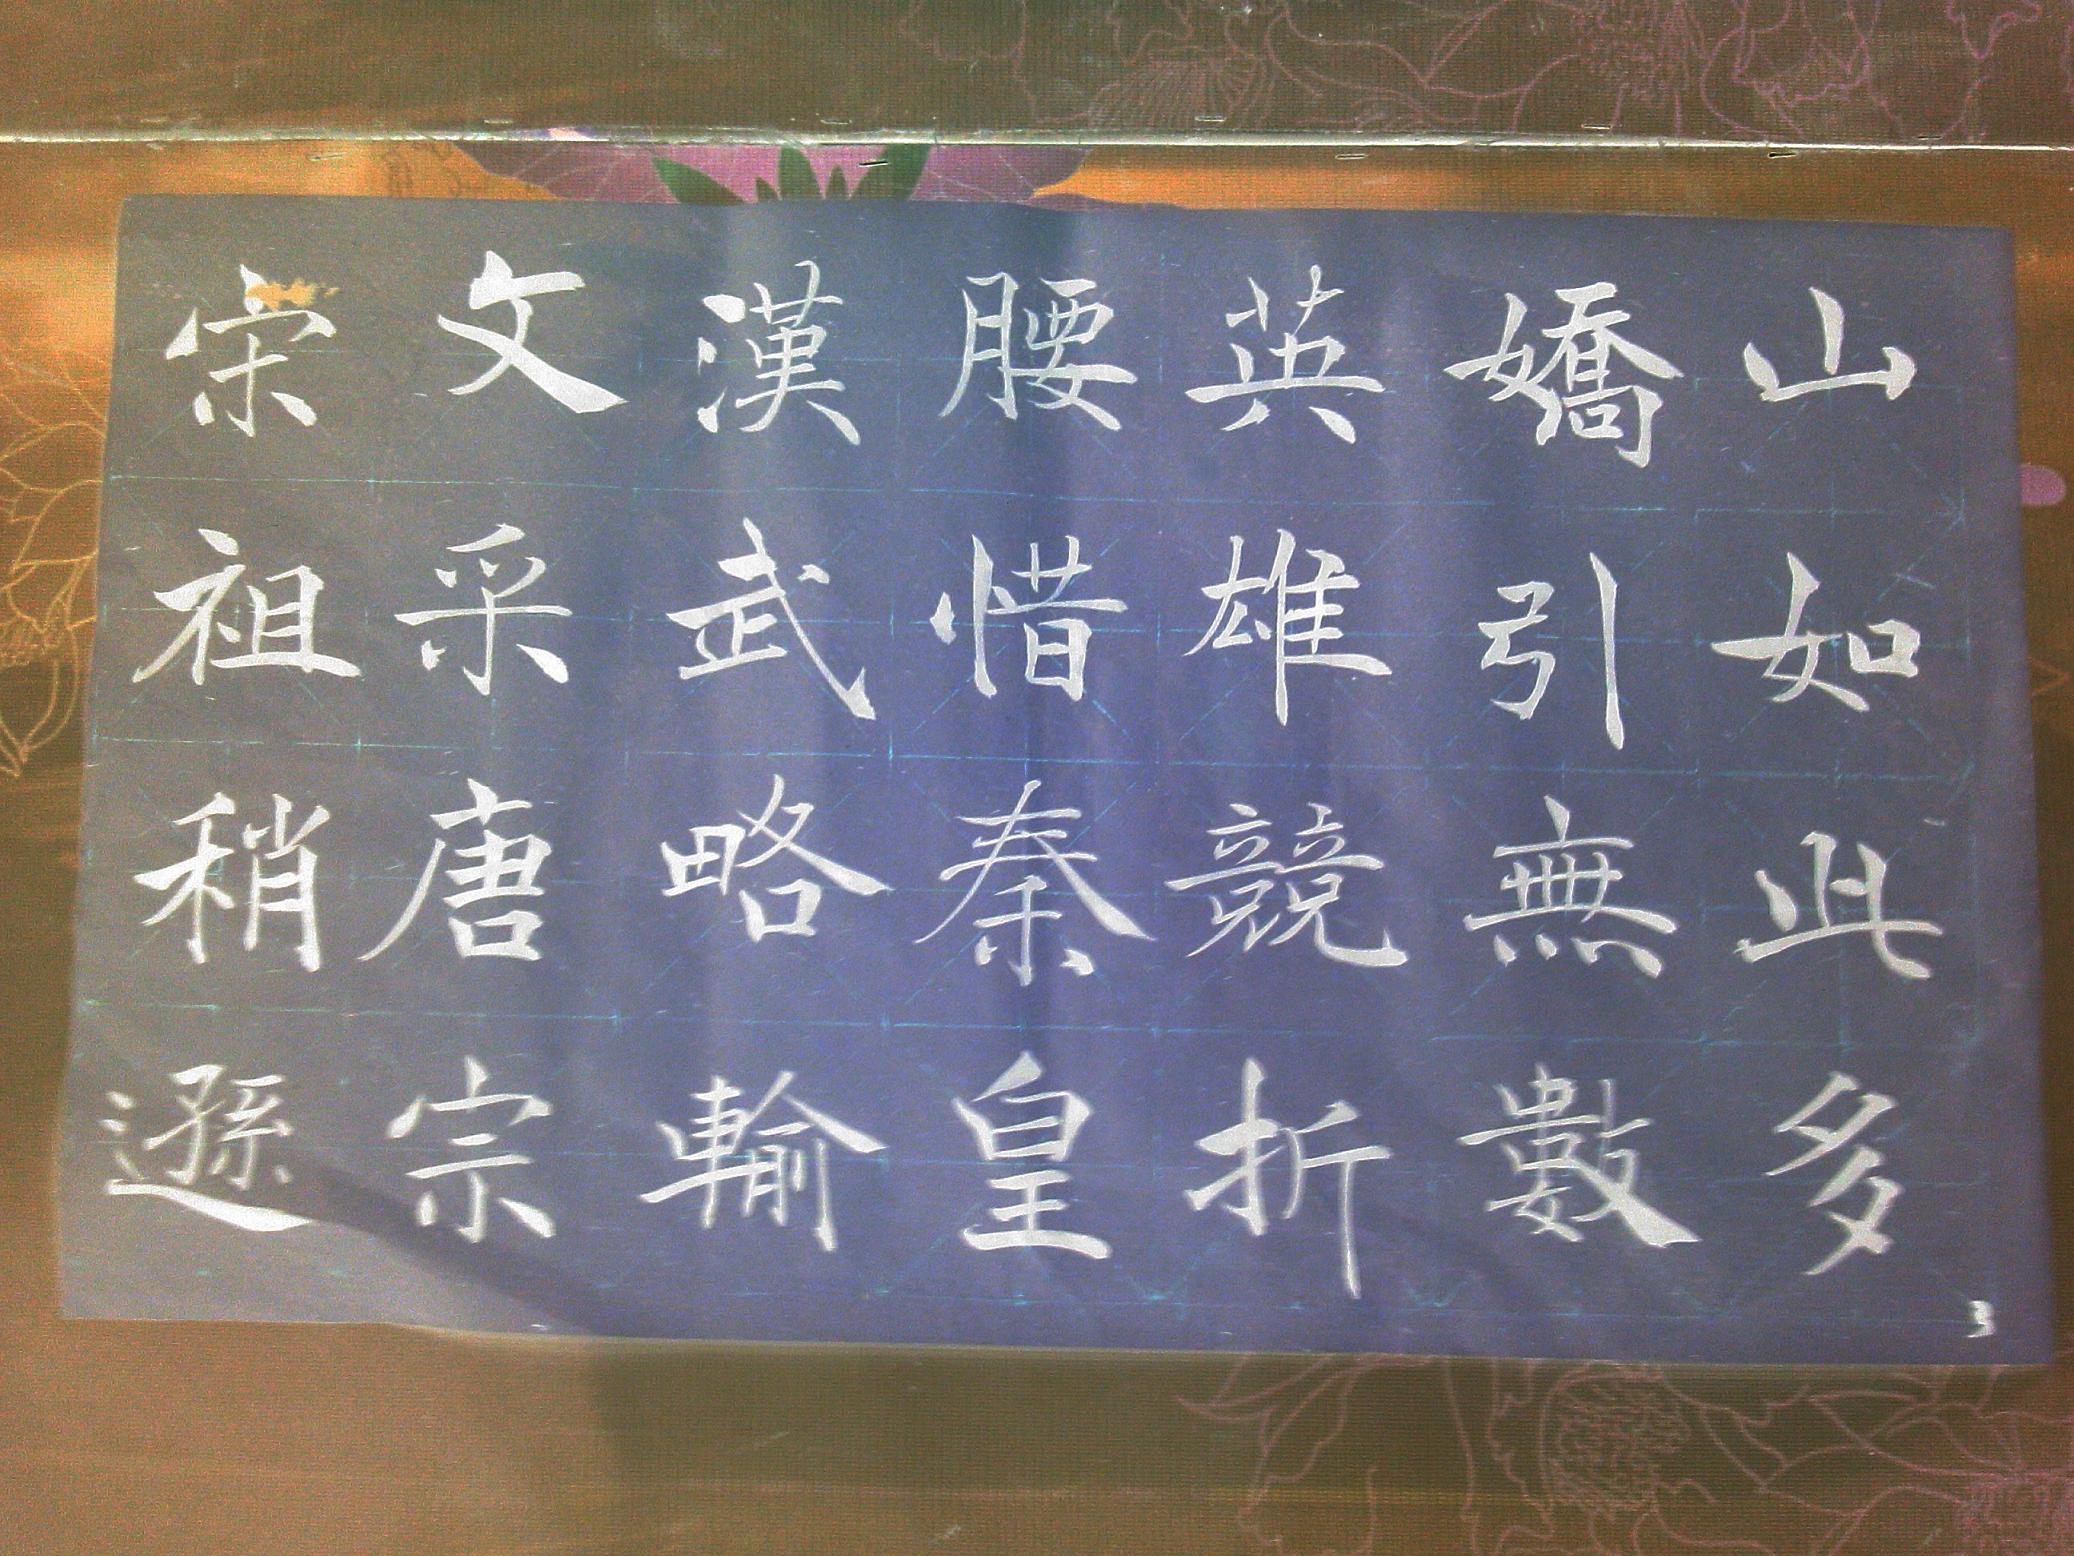 山如此多
嬌引無數
英雄競折
腰惜秦皇
漢武略輸
文采唐宗
宋祖稍遜
3